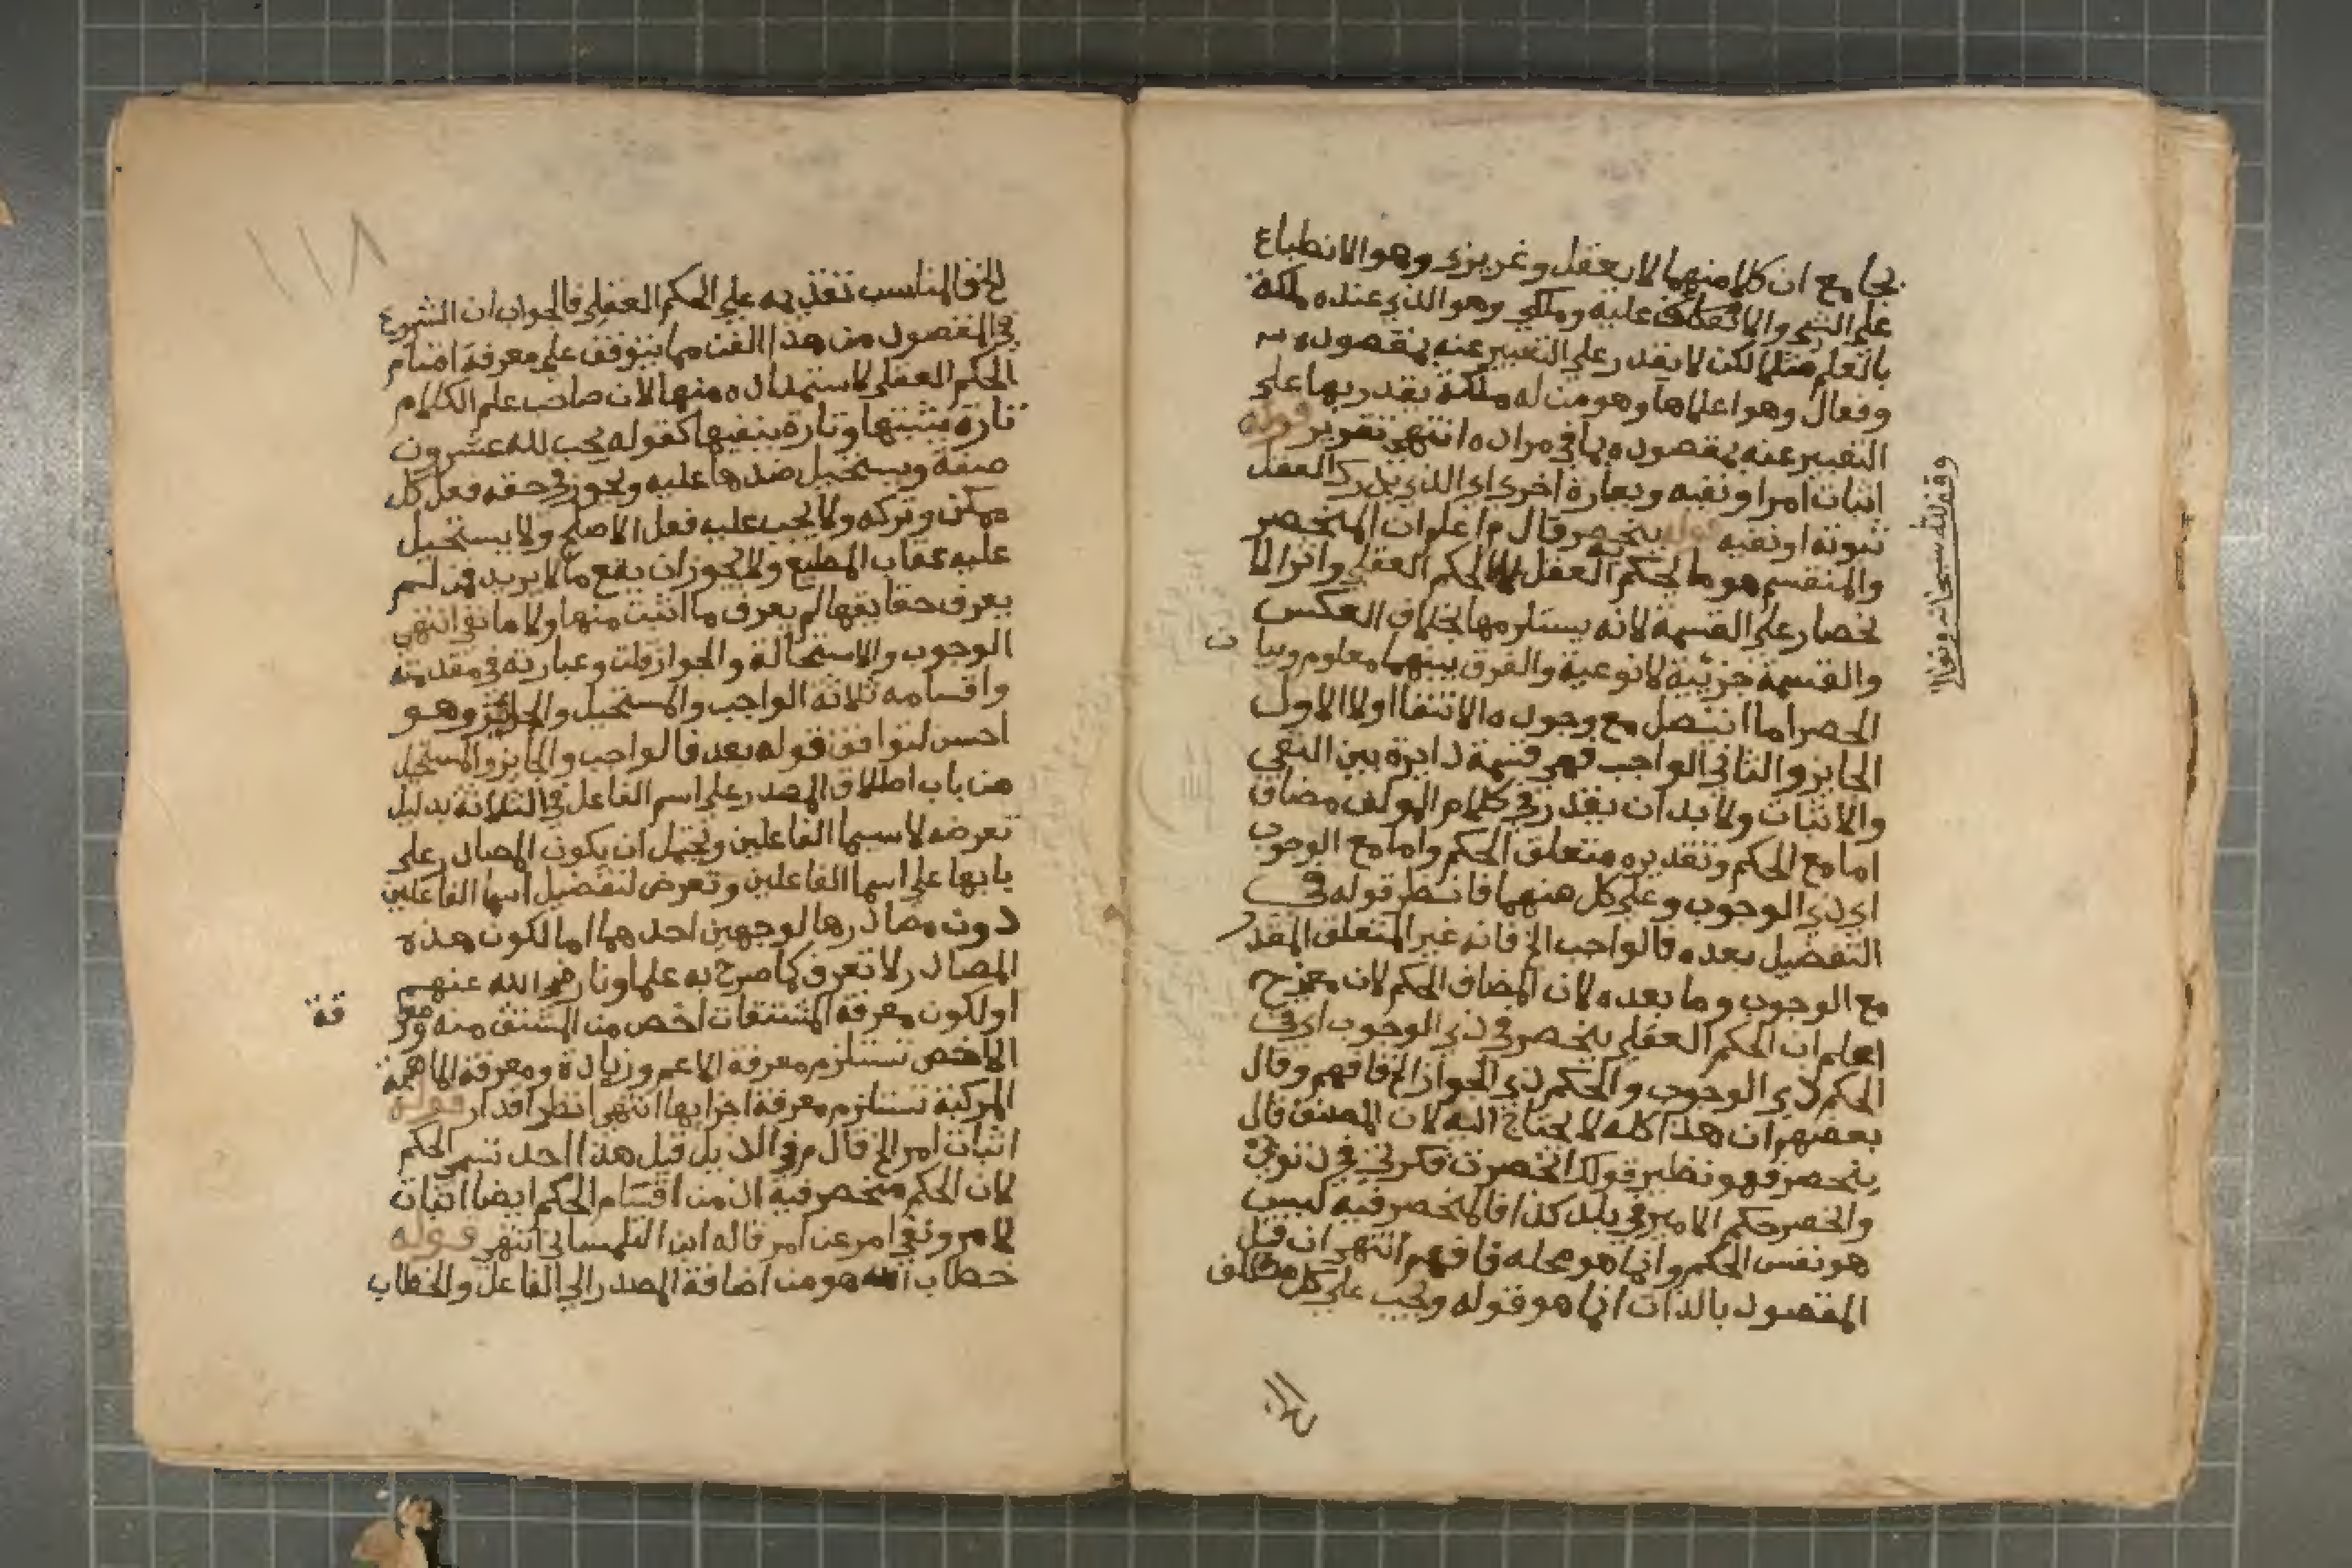 بجامع ان كلا منهما لا يعقل وغريزي وهو الانطباع
على الشي والانعكاف عليه وملكي وهو الذي عنده ملكة
بالعلم مثلا لكن لا يقدر على التعبير عنه بمقصوده
وفعال وهو اعلاها وهو من له ملكة يقدر بها على
التعبير عنه بمقصوده بما في مراده انتهى تقرير قوله
اثبات امر او نفيه وبعبارة اخرى اي الذي يدرك العقل
ثبوته او نفيه قوله ينحصر قال م اعلم ان المنحصر
والمنقسم هو ما حكم به العقل لا الحكم العقلي واثر الا
نحصار على القسمة لانه يستلزمها بخلاف العكس
والقسمة جزئية لا نوعية والفرق بينهما معلوم وبيا
ن
الحصر اما ان تتصل مع وجوده الانتفا اولا الاول
الجايز والثاني الواجب فهي قسمة دايرة بين النفي
والاثبات ولا بد ان يقدر في كلام المولف مضاف
اما مع الحكم وتقديره متعلق الحكم واما مع الوجوب
اي ذي الوجوب وعلى كل منهما فانظر قوله في
التفصيل بعده فالواجب الخ فانه غير المتعلق المقدر
مع الوجوب وما بعده لان المضاف الحكم لان
اعلم ان الحكم العقلي ينحصر في ذي الوجوب اي في
الحكم لذي الوجوب والحكم لذي الجواز الخ فافهم وقال
بعضهم ان هذا كله لا يحتاج اليه لان المصنف قال
ينحصر فهو نظير قولك انحصرت فكرتي في ذنوبي
وانحصر حكم الامير في بلد كذا فالمنحصر فيه ليس
هو نفس الحكم وانما هو محله فافهم انتهى ان قيل
المقصود بالذات انما هو قوله ويجب على كل مكلف
وقف لله سبحانه وتعالى
١١٨
الخ فالمناسب تقديمه على الحكم العقلي فالجواب ان الشروع
في المقصود من هذا الفن مما يتوقف على معرفة اقسام
الحكم العقلي لاستمداده منها لان صاحب علم الكلام
تارة يثبتها وتارة ينفيها كقوله يجب لله عشرون
صفة ويستحيل ضدها عليه ويجوز في حقه فعل كل
ممكن وتركه ولا يجب عليه فعل الاصلح ولا يستحيل
عليه عقاب المطيع ولا يجوز ان يقع ما لا يريد فمن لم
يعرف حقايقها لم يعرف ما اثبت منها ولا ما نفي انتهى
الوجوب والاستحالة والجواز قلت وعبارته في مقدمته
واقسامه ثلاثة الواجب والمستحيل والجايز وهو
احسن لتوافق قوله بعد فالواجب والجايز والمستحيل
من باب اطلاق المصدر على اسم الفاعل في الثلاثة بدليل
تعرضه لاسما الفاعلين ويحتمل ان يكون المصادر على
بابها على اسما الفاعلين وتعرض لتفصيل اسما الفاعلين
دون مصادرها لوجهين احدهما اما لكون هذه
المصادر لا تعرف كما صرح به علماونا رضي الله عنهم
او لكون معرفة المشتقات اخص من المشتق منه ومعر
فة
الاخص تستلزم معرفة الاعم وزيادة ومعرفة الماهية
المركبة تستلزم معرفة اجزايها انتهى انظر اقدار قوله
اثبات امر الخ قال م في الذيل قبل هذا الحد تسمي الحكم
لان الحكم منحصر فيه اذ من اقسام الحكم ايضا اثبات
لامر ونفي امر عن امر قاله ابن التلمساني انتهى قوله
خطاب الله هو من اضافة المصدر الى الفاعل والخطاب